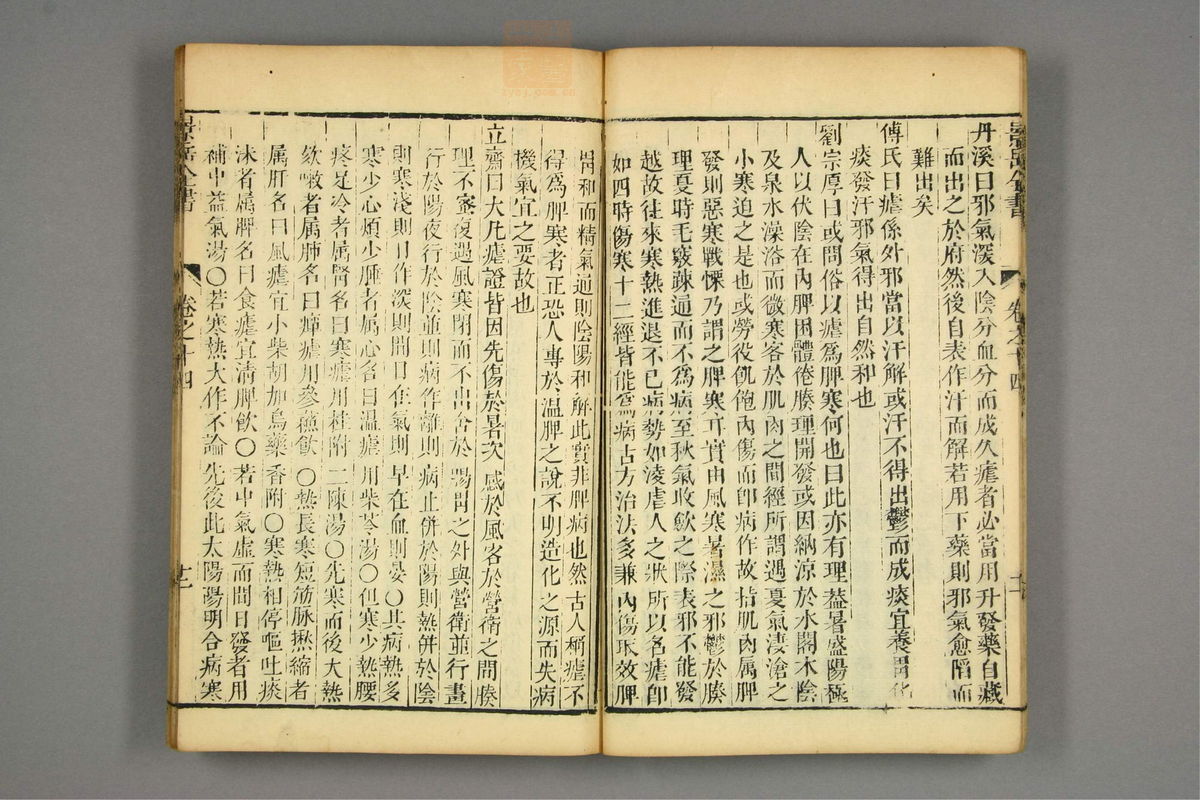 景岳全書
卷之十四
丹溪曰邪氣深入陰分血分而成久瘧者必當用升發藥自藏
而出之於府然後自表作汗而解若用下藥則邪氣愈陷而
難出矣
傅氏曰瘧係外邪當以汗解或汗不得出鬱而成痰宜養胃化
痰發汗邪氣得出自然和也
劉宗厚曰或問俗以瘧為脾寒何也曰此亦有理葢暑盛陽極
人以伏陰在內脾困體倦腠理開發或因納涼於水閣木陰
及泉水澡浴而微寒客於肌肉之間經所謂遇夏氣淒滄之
小寒迫之是也或勞役飢飽內傷而即病作故指肌肉属脾
發則惡寒戰慄乃謂之脾寒耳實由風寒暑濕之邪鬱於腠
理夏時毛竅疎通而不為病至秋氣收斂之際表邪不能發
越故往來寒熱進退不已病勢如淩虐人之狀所以名瘧即
如四時傷寒十二經皆能為病古方治法多兼內傷取效脾
胃和而精氣通則陰陽和解此實非脾病也然古人稱瘧不
得為脾寒者正恐人專於溫脾之說不明造化之源而失病
機氣宜之要故也
立齋曰大凡瘧證皆因先傷於暑次感於風客於營衛之間腠
理不密復遇風寒閉而不出舍於腸胃之外與營衛並行晝
行於陽夜行於陰並則病作離則病止併於陽則熱併於陰
則寒淺則日作深則間日在氣則早在血則晏〇其病熱多
寒少心煩少睡者属心名曰溫瘧用柴苓湯〇但寒少熱腰
疼足冷者属腎名曰寒瘧用桂附二陳湯〇先寒而後大熱
欬嗽者属肺名曰瘴瘧用參蘇飲〇熱長寒短筋脉揪縮者
属肝名曰風瘧宜小柴胡加烏藥香附〇寒熱相停嘔吐痰
沫者属脾名曰食瘧宜清脾飲〇若中氣虛而間日發者用
補中益氣湯〇若寒熱大作不論先後此太陽陽明合病寒
景岳全書
卷之十四